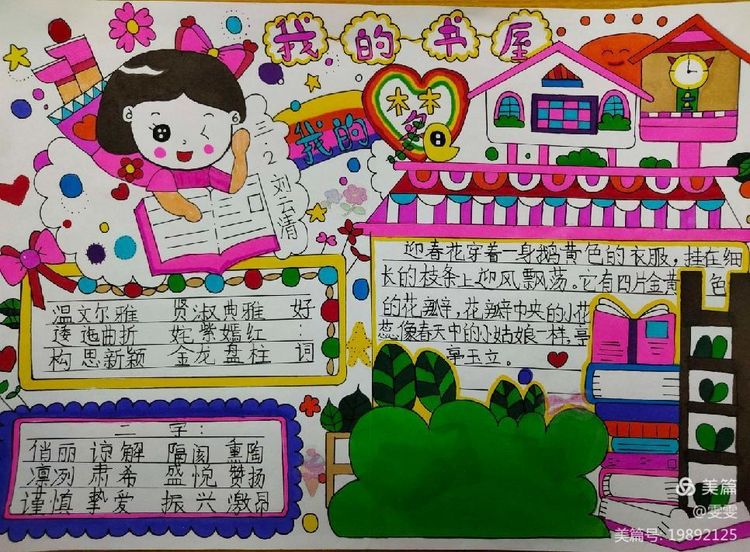 我的书屋
我的梦
三.2 刘云清
温文尔雅 贤淑典雅 好
逶迤曲折 姹紫嫣红 :
构思新颖 金龙盘柱 词
二字:
俏丽 谅解 隔阂 熏陶
凛冽 肃希 盛悦 赞扬
谨慎 挚爱 振兴 激昂
迎春花穿着一身鹅黄色的衣服，挂在细
长的枝条上迎风飘荡。它有四片金黄色
的花瓣，花瓣中央的小花
蕊像春天中的小姑娘一样，亭
亭玉立。
美篇
@雯雯
美篇号: 19892125